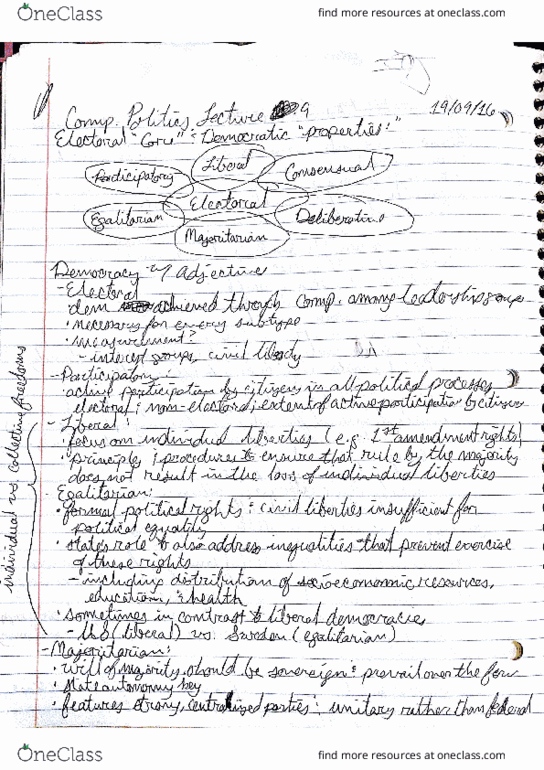 OneClass
find more resources at oneclass.com
Comp. Politics Lecture 9
19/09/16
Electoral "Core" & Democratic "properties:"
Participatory
Liberal
Consensual
Electoral
Egalitarian
Deliberative
Majoritarian
Democracy w/ Adjectives
- Electoral
dem achieved through comp. among leadership groups
• necessary for every subtype
• measurement?
- interest groups, civil liberty
- Participatory:
• active participation by citizens in all political processes
electoral & non-electoral; extent of active participation by citizens
- Liberal:
• focus on individual liberties (e.g. 1st amendment rights)
• principles & procedures to ensure that rule by the majority
does not result in the loss of individual liberties
- Egalitarian:
• formal political rights & civil liberties insufficient for
political equality
• state's role to also address inequalities that prevent exercise
of these rights
- including distribution of socioeconomic resources,
education, & health
• sometimes in contrast to liberal democracies
- US (liberal) vs. Sweden (egalitarian)
individual vs collective freedoms
- Majoritarian:
• will of majority should be sovereign & prevail over the few
• state autonomy key
• features strong, centralized parties; unitary rather than federal
OneClass
find more resources at oneclass.com